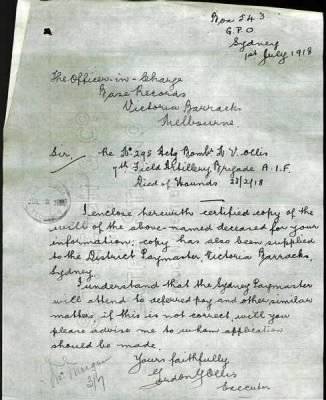 Box 543
G.P.O
Sydney
1st July 1918
The Officer-in-Charge
Base Records
Victoria Barracks
Melbourne
Sir, re No 298 Actg Bombr V. Ollis
7th Field Artillery Brigade A.I.F.
Died of Wounds 28/2/18
I enclose herewith certified copy of the
will of the above-named deceased for your
information; copy has also been supplied
to the District Paymaster Victoria Barracks,
Sydney.
I understand that the Sydney Paymaster
will attend to deferred pay and other similar
matters, if this is not correct, will you
please advise me to whom application
should be made.
Yours faithfully
Gordon G Ollis
Executor
Mr Morgan
3/7